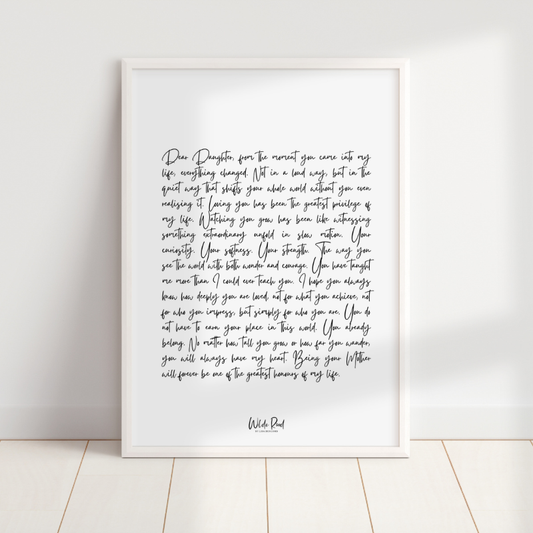 Dear Daughter, from the moment you came into my
life, everything changed. Not in a loud way, but in the
quiet way that shifts your whole world without you even
realising it. Loving you has been the greatest privilege of
my life. Watching you grow has been like witnessing
something extraordinary unfold in slow motion. Your
curiosity. Your softness. Your strength. The way you
see the world with both wonder and courage. You have taught
me more than I could ever teach you. I hope you always
know how deeply you are loved, not for what you achieve, not
for who you impress, but simply for who you are. You do
not have to earn your place in this world. You already
belong. No matter how tall you grow or how far you wander,
you will always have my heart. Being your Mother
will forever be one of the greatest honours of my life.
Wilde Road